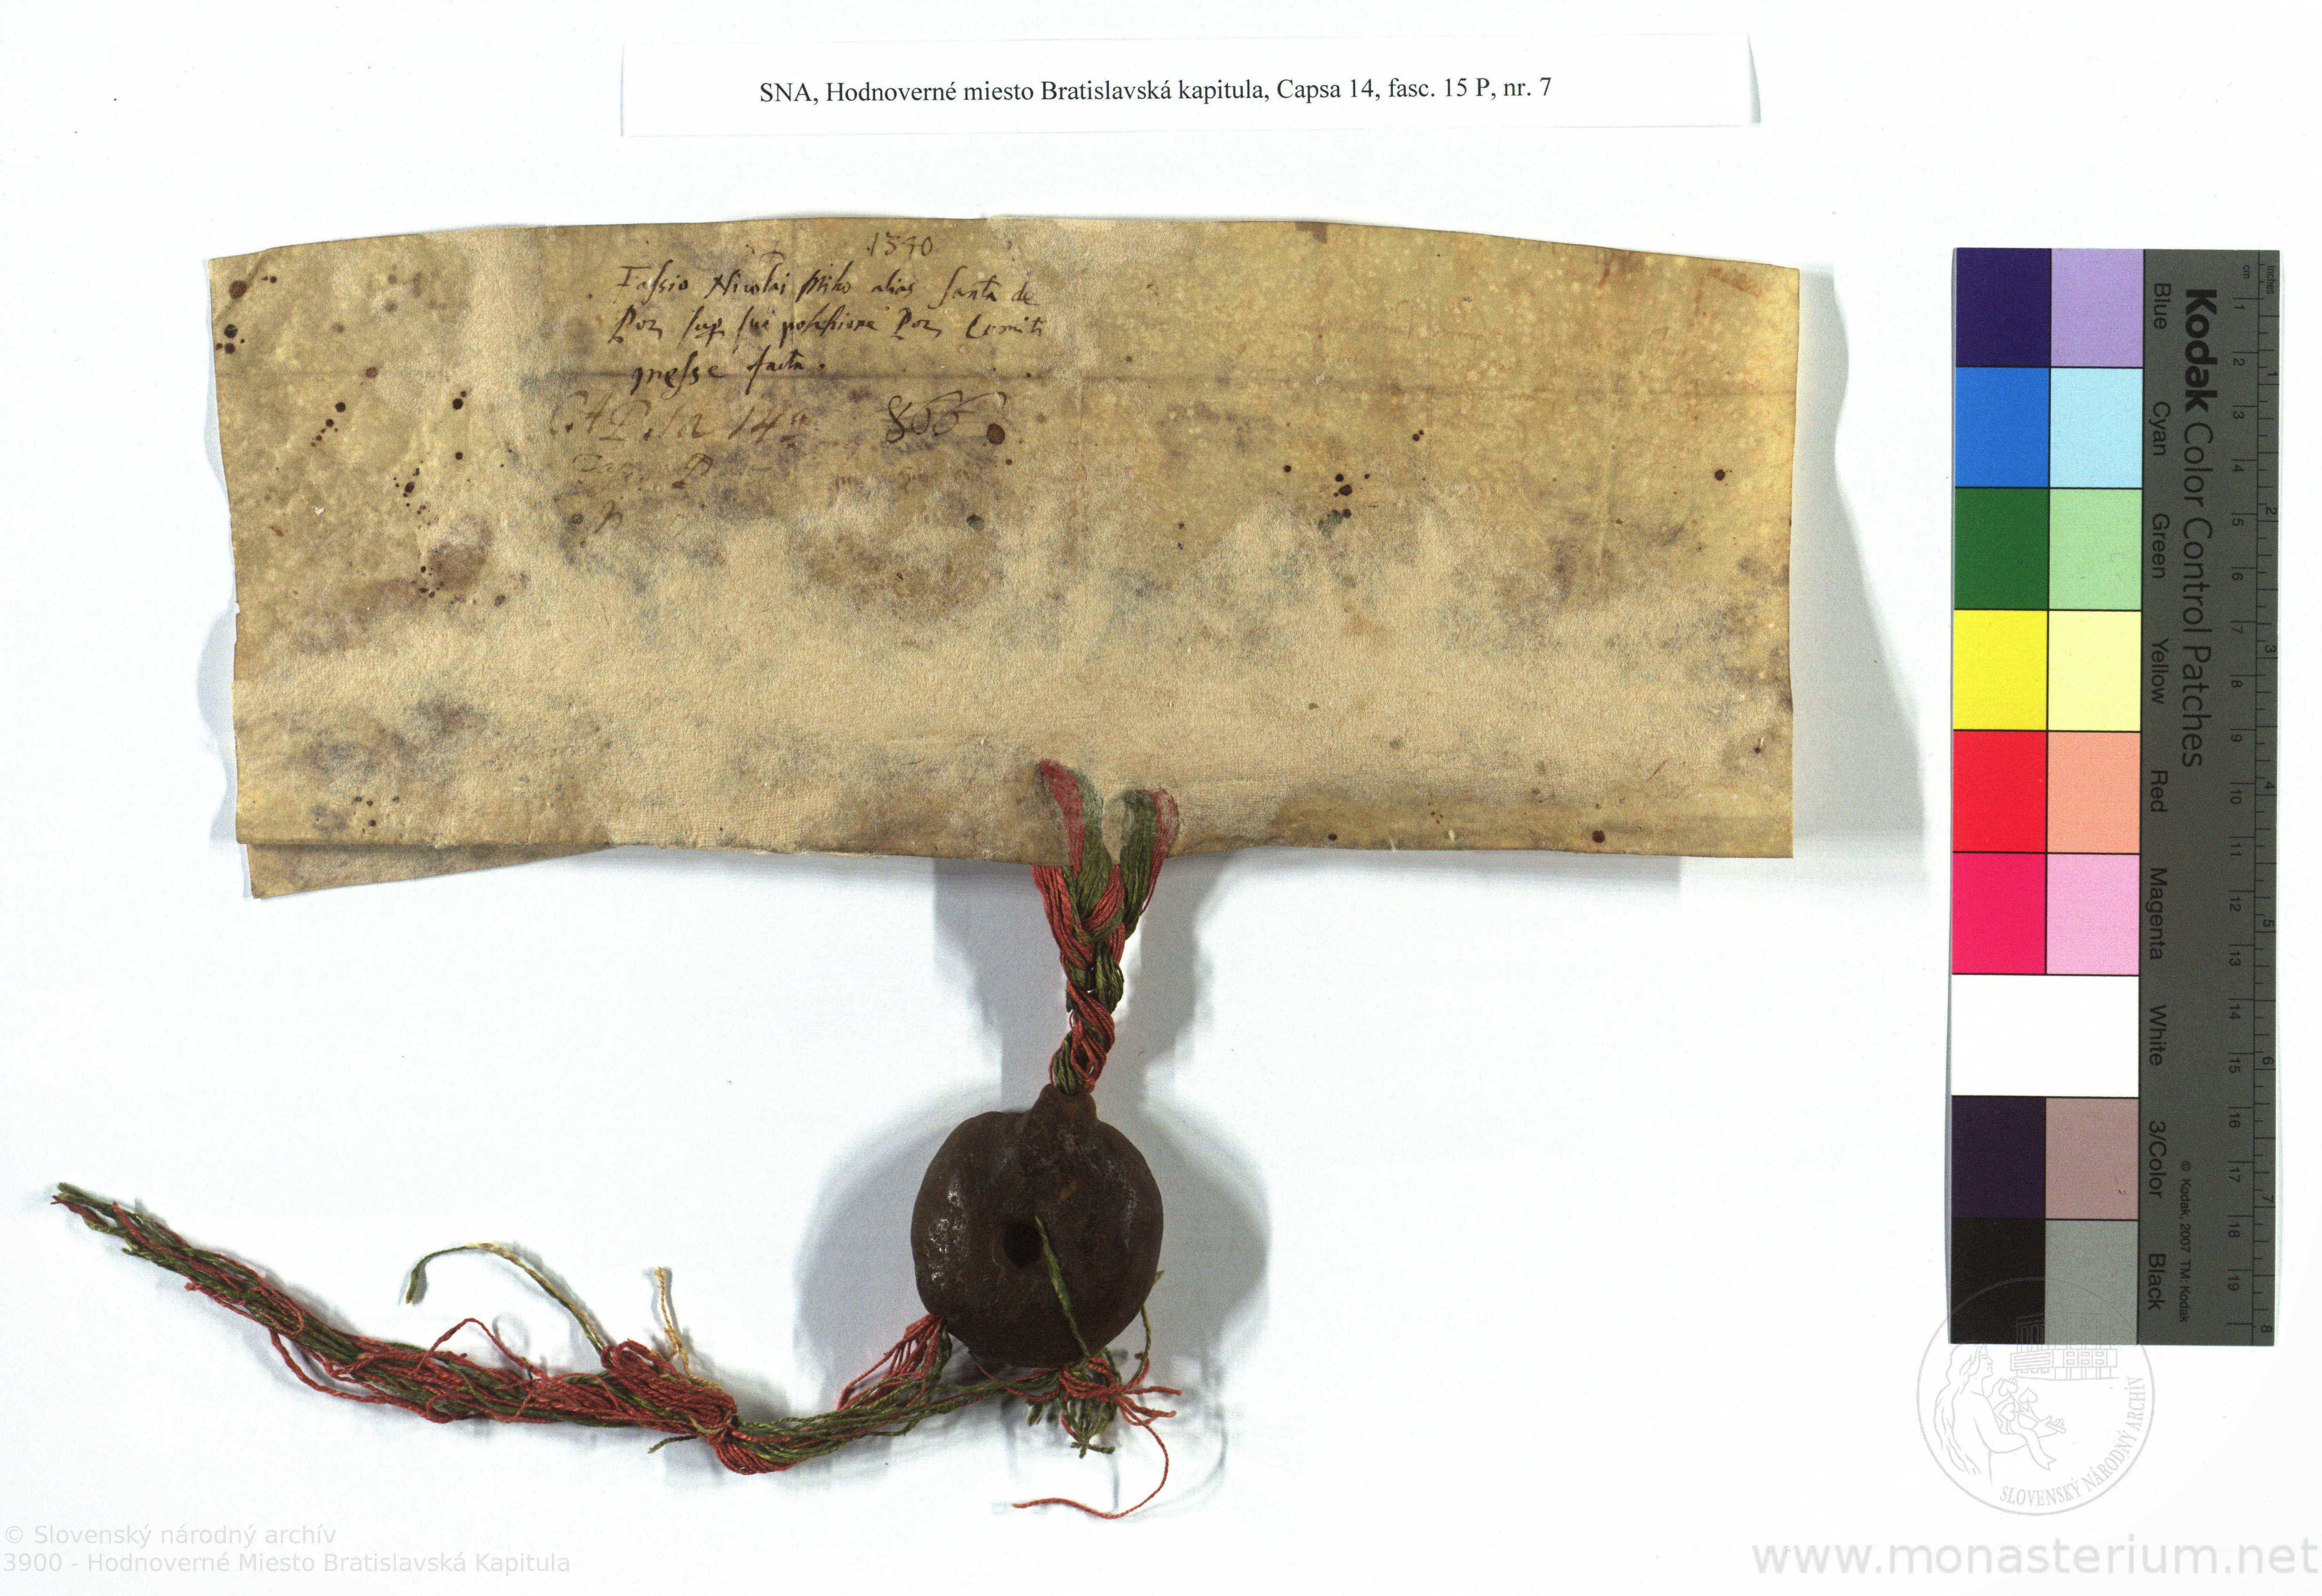 SNA, Hodnoverné miesto Bratislavská kapitula, Capsa 14, fasc. 15 P, nr. 7
1340
Fassio Nicolai alias de
Poz sup sua possessione Poz Comit
facta.
CAPSa 14a 866
P
Kodak Color Control Patches
Blue Cyan Green Yellow Red Magenta White 3/Color Black
© Kodak, 2007 TM: Kodak
cm 1 2 3 4 5 6 7 8 9 10 11 12 13 14 15 16 17 18 19
inches 1 2 3 4 5 6 7 8
SLOVENSKÝ NÁRODNÝ ARCHÍV
© Slovenský národný archív
3900 - Hodnoverné Miesto Bratislavská Kapitula
www.monasterium.net